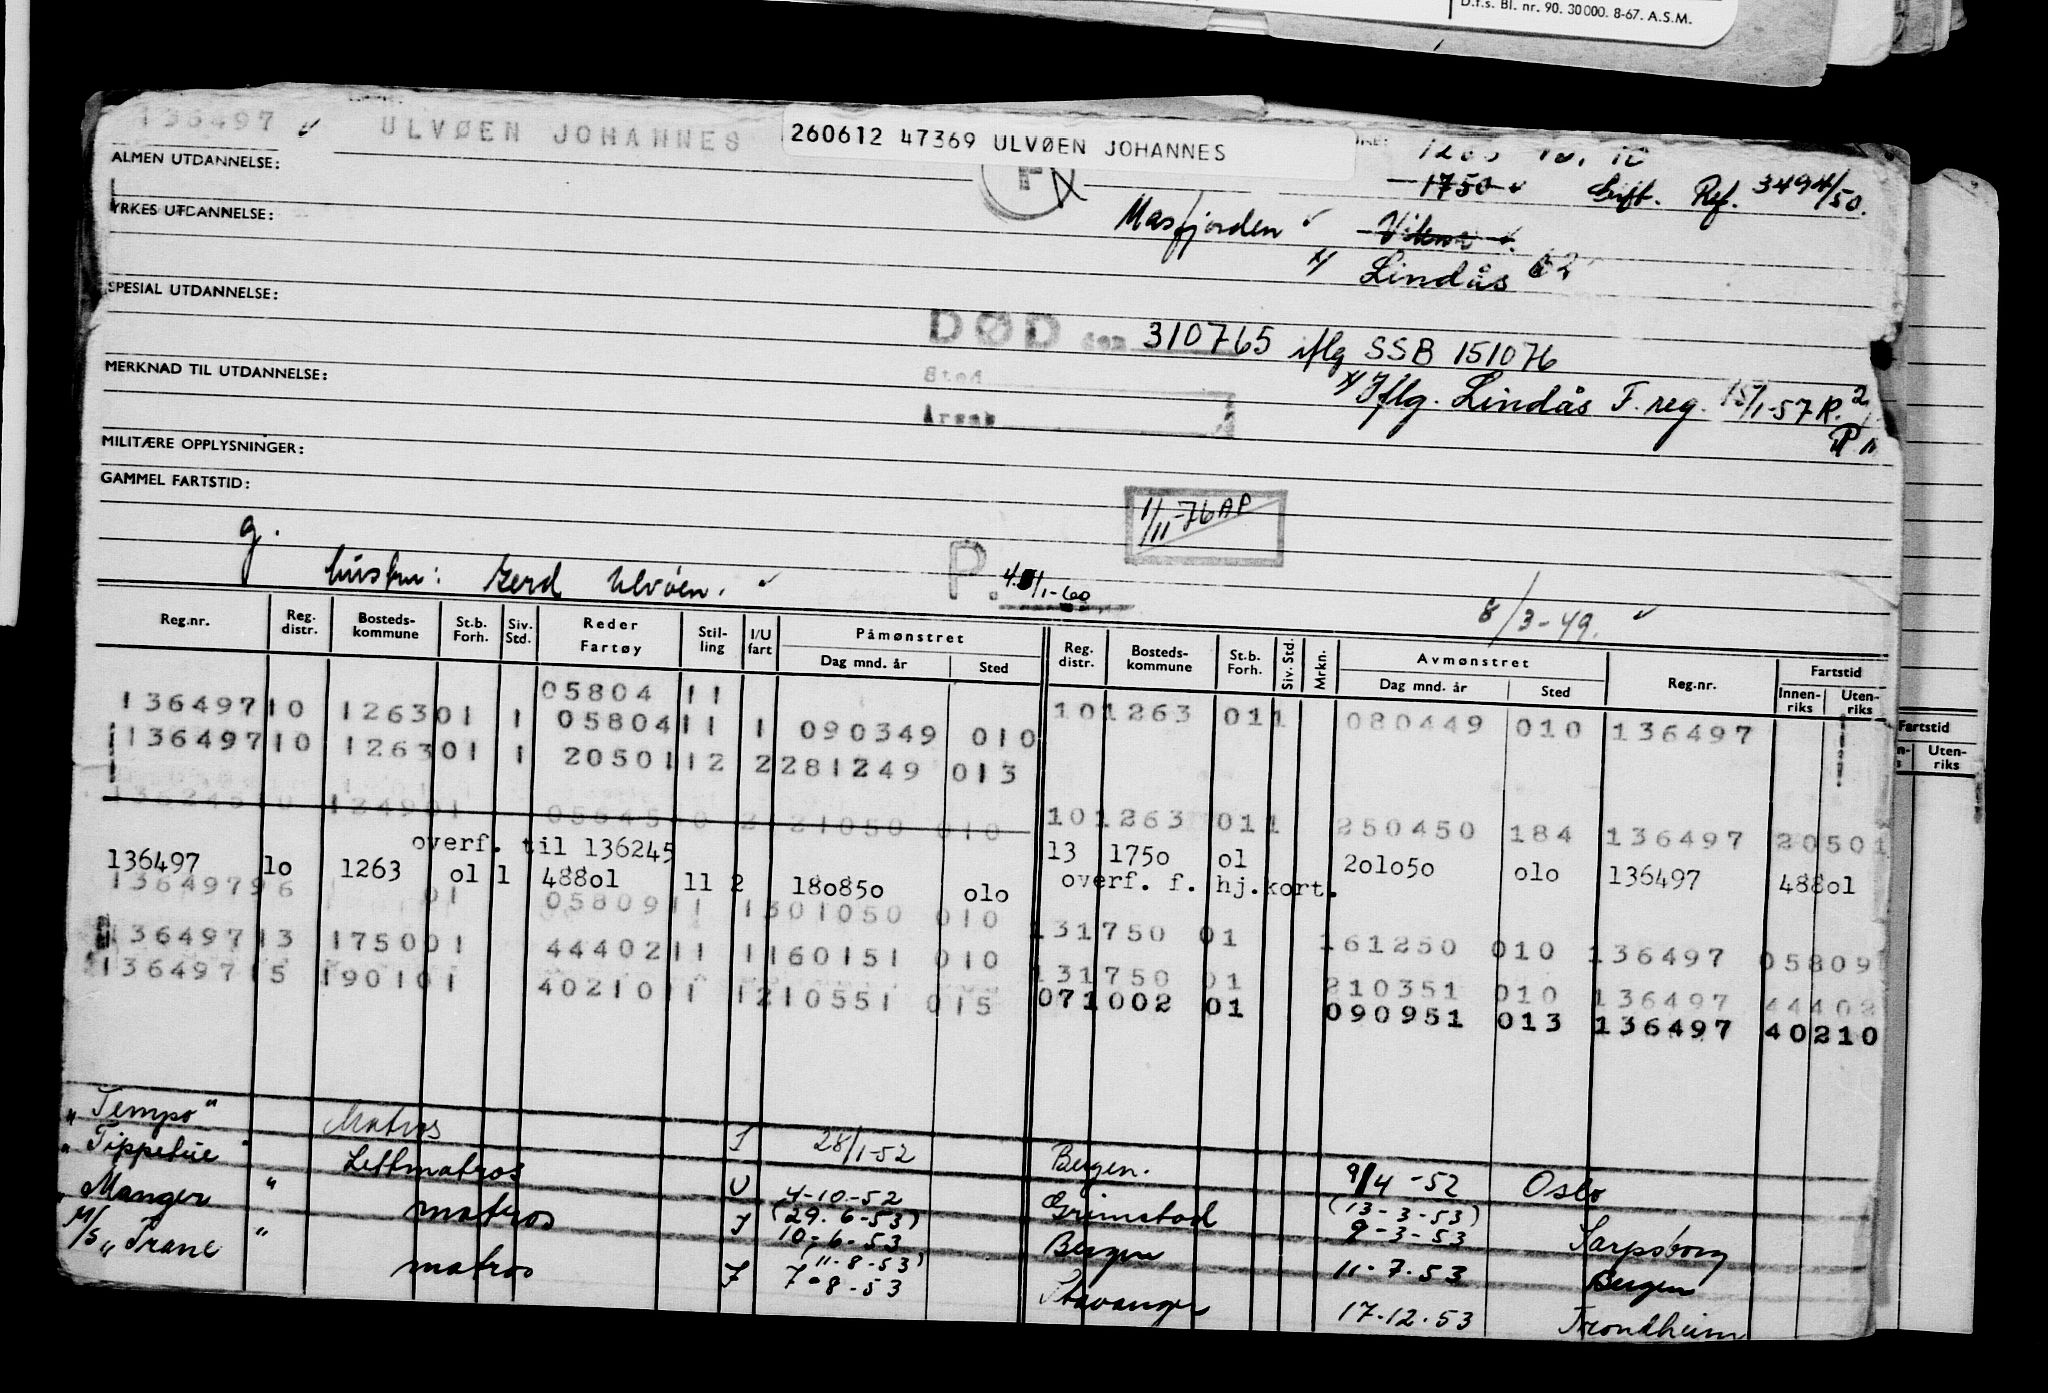 D.f.s. Bl. nr. 90. 30000. 8-67. A.S.M.
136497 ULVØEN JOHANNES 260612 47369 ULVØEN JOHANNES
ALMEN UTDANNELSE:
1750 Skift. Ref. 3494/50.
YRKES UTDANNELSE:
Masfjorden
Lindås 62
SPESIAL UTDANNELSE:
DØD den 310765 iflg SSB 151076
Sted
MERKNAD TIL UTDANNELSE:
x/ Iflg. Lindås F. reg. 15/1-57 R.
Årsak
MILITÆRE OPPLYSNINGER:
GAMMEL FARTSTID:
1/11-76 AP
g.
hustru: Gerd Ulvøen. P. 4/1-60
8/3-49.
Reg.nr. Reg. distr. Bosteds-kommune St.b. Forh. Siv. Std. Reder Fartøy Stil-ling I/U fart Påmønstret Dag mnd. år Sted Reg. distr. Bosteds-kommune St.b. Forh. Siv. Std. Mrkn. Avmønstret Dag mnd. år Sted Reg.nr. Fartstid Innen-riks Uten-riks
05804 11
136497 10 1263 01 1 05804 11 1 090349 010 10 1263 01 1 080449 010 136497
136497 10 1263 01 1 20501 12 2 281249 013
10 1263 01 1 250450 184 136497 20501
overf. til 136245
136497 lo 1263 ol 1 488ol 11 2 18o85o olo 13 175o ol 2olo5o olo 136497 488ol
overf. f. hj.kort.
136497 96 01 05809 11 1 301050 010 13 1750 01 161250 010 136497 05809
136497 13 1750 01 44402 11 1 160151 010 13 1750 01 210351 010 136497 44402
136497 15 1901 01 40210 11 1 210551 015 07 1002 01 090951 013 136497 40210
"Tempo" Matros I 28/1-52 Bergen. 9/4-52 Oslo
"Tippetue" Lettmatros U 4-10-52 Grimstad (13-3-53) 9-3-53 Sarpsborg
"Manger" matros I (29.6-53) 10-6-53 Bergen 11.7.53 Bergen
M/S "Trane" matros I (11-8-53) 7-8-53 Stavanger 17.12.53 Trondheim
Fartstid
Uten-riks